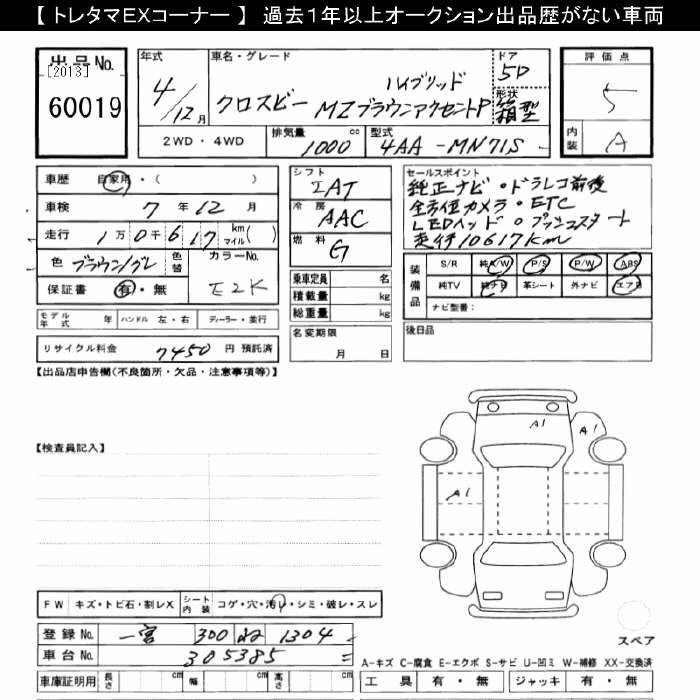 【 トレタマEXコーナー 】 過去1年以上オークション出品歴がない車両
出品No.
[2013]
60019
年式 4/12月
車名・グレード クロスビー ハイブリッド MZブラウンアクセントP
ドア 5D
形状 箱型
評価点 5
内装 A
2WD・4WD
排気量 1000 cc
型式 4AA-MN71S
車歴 自家用・( )
車検 7年12月
走行 1万0千617 km マイル( )
色 ブラウン/グレ
色替
カラーNo. E2K
保証書 有・無
モデル年式 年 ハンドル 左・右 ディーラー・並行
リサイクル料金 7450 円 預託済
シフト IAT
冷房 AAC
燃料 G
乗車定員 名
積載量 kg
総重量 kg
名変期限 月 日
セールスポイント
純正ナビ・ドラレコ前後
全方位カメラ・ETC
LEDヘッド・プッシュスタート
走行10617km
装備品 S/R 純A/W P/S P/W ABS
純TV 純ナビ 革シート 外ナビ エアB
ナビ型番:
後日品
【出品店申告欄(不良箇所・欠品・注意事項等)】
【検査員記入】
A1
A1
A1
FW キズ・トビ石・割レX シート内装 コゲ・穴・汚レ・シミ・破レ・スレ
登録No. 一宮 300 1304
車台No. 305385
車庫証明用 長さ cm 幅 cm 高さ cm
スペア
A-キズ C-腐食 E-エクボ S-サビ U-凹ミ W-補修 XX-交換済
工具 有・無 ジャッキ 有・無